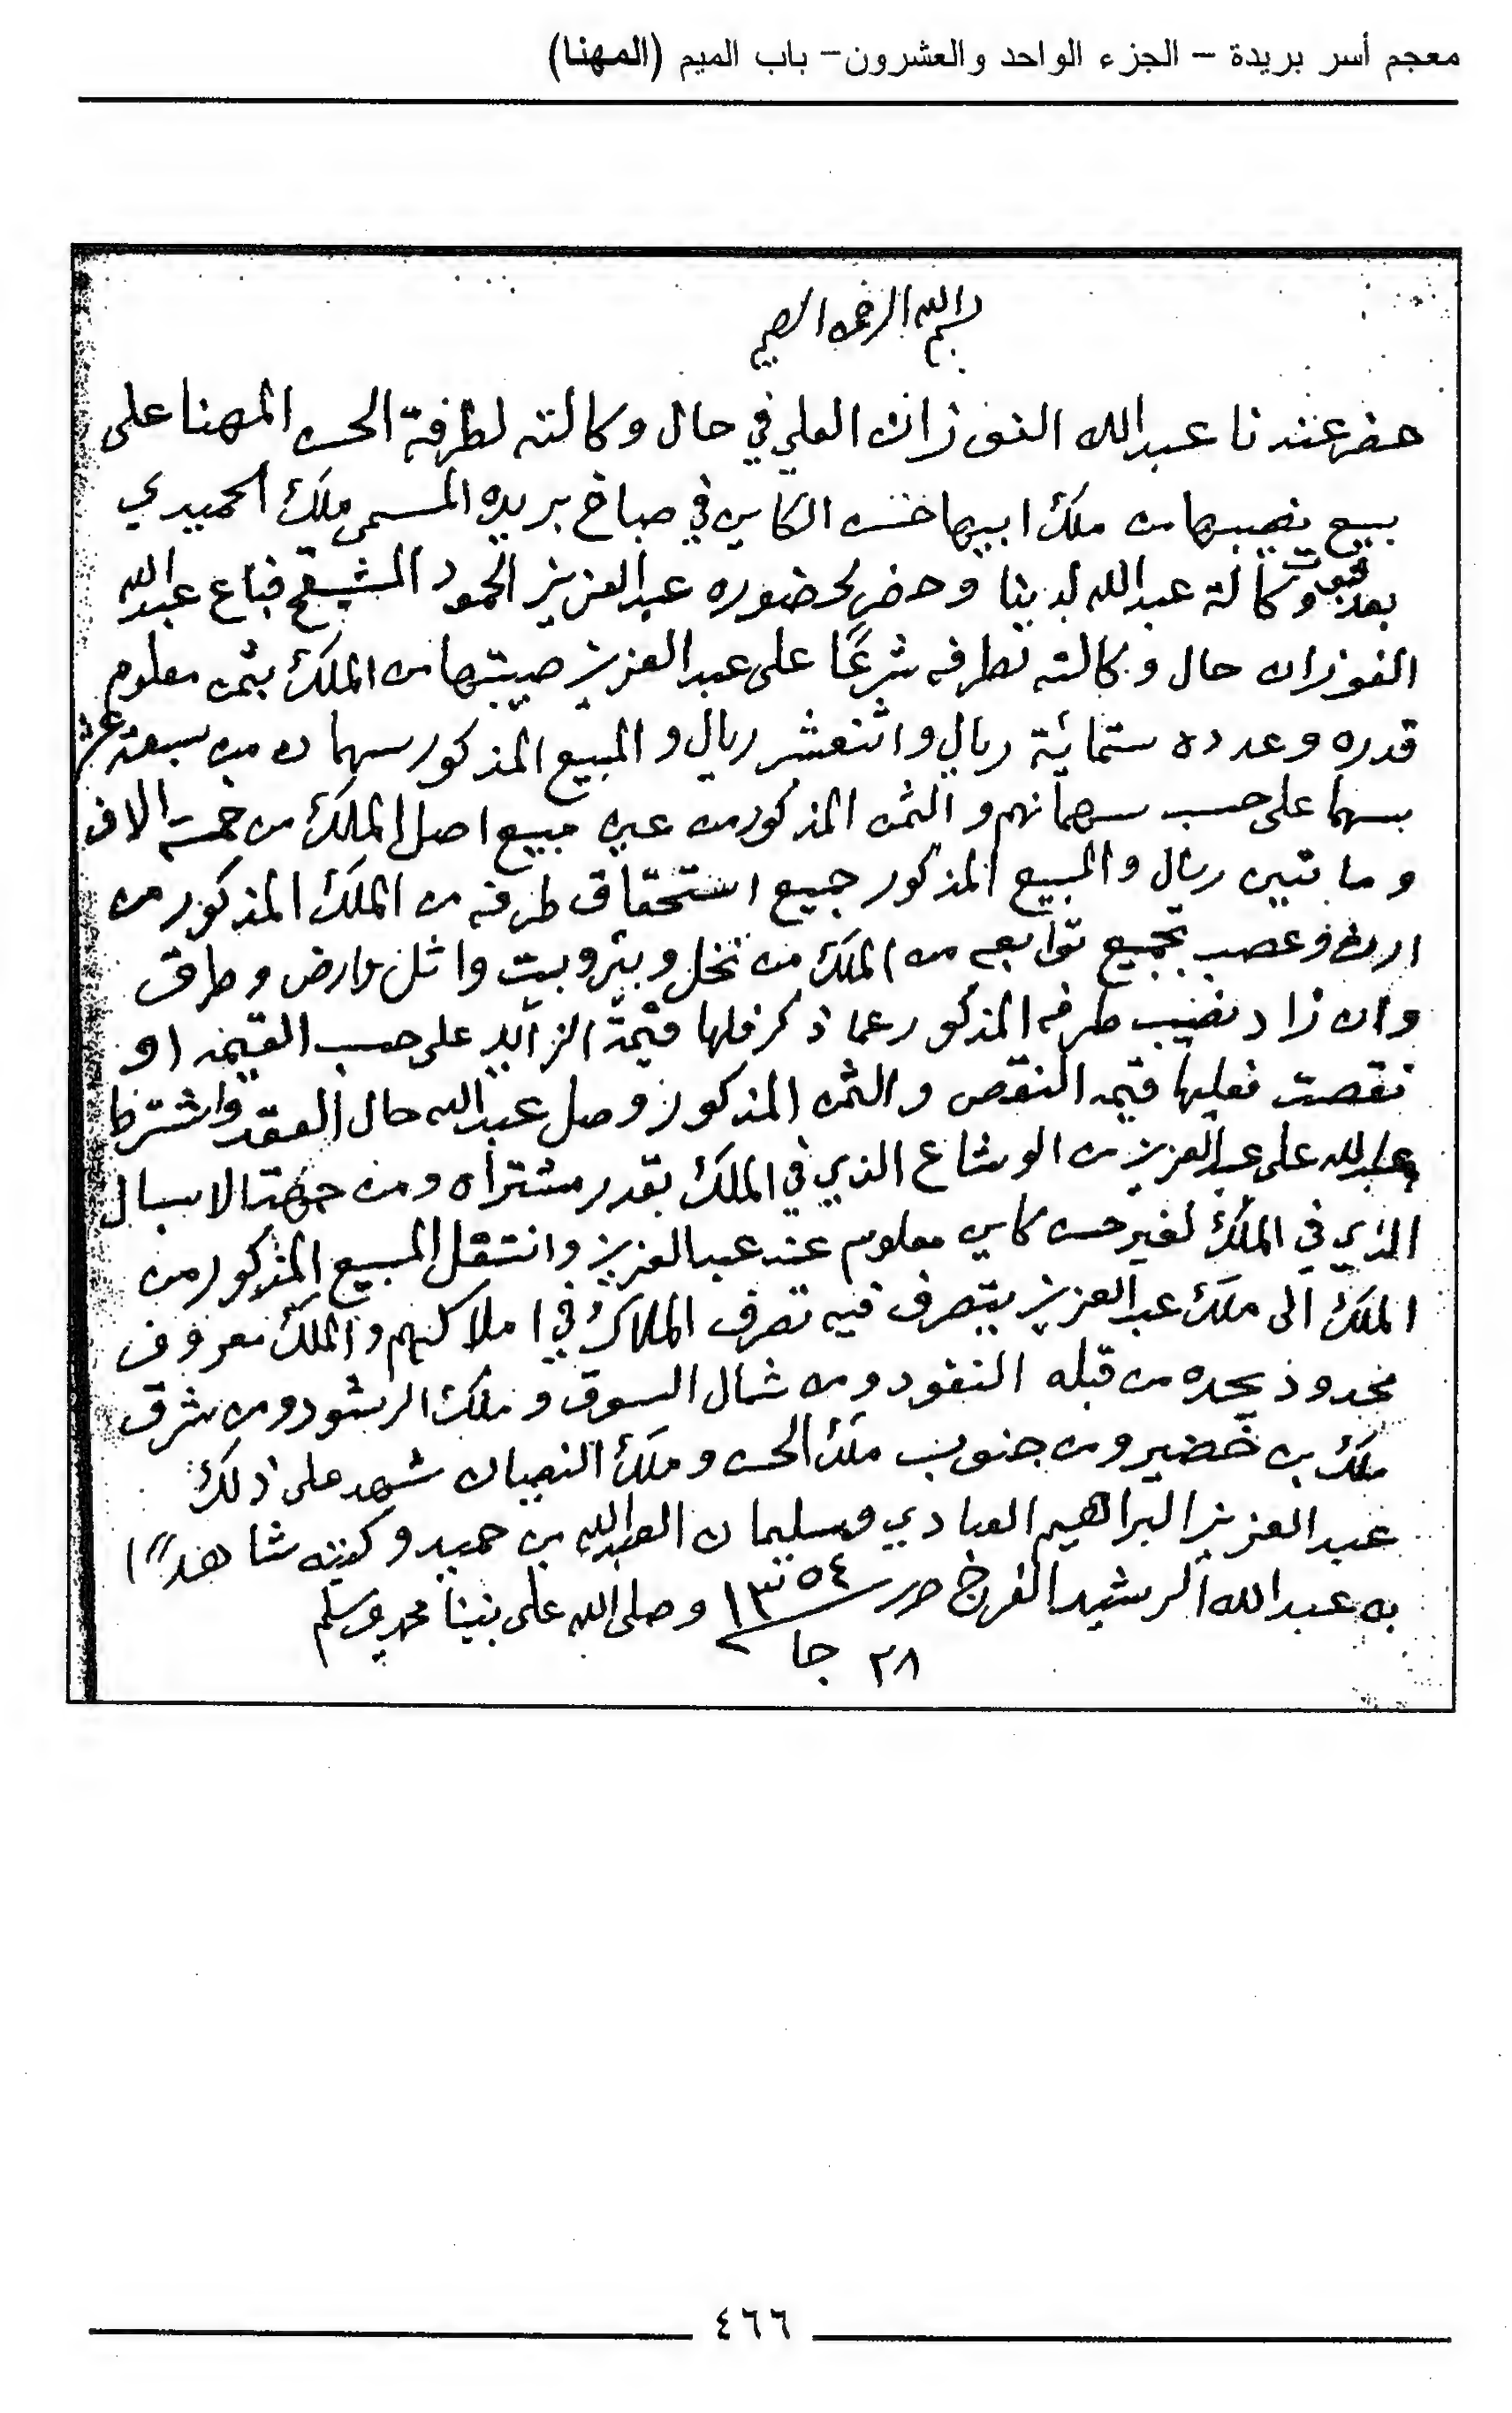 معجم أسر بريدة – الجزء الواحد والعشرون– باب الميم (المهنا)
بسم الله الرحمن الرحيم
حضر عندنا عبدالله الفوزان العلي في حال وكالته لطرفة الحسن المهنا على
بيع نصيبها من ملك ابيها حسن الكاين في صباخ بريده المسمى ملك الحميدي
بعد ثبوت وكالة عبدالله لدينا وحضر لحضوره عبدالعزيز الحمود المشيقح فباع عبدالله
الفوزان حال وكالته لطرفه شرعًا على عبدالعزيز صيبتها من الملك بثمن معلوم
قدره وعدده ستمائة ريال واثنعشر ريال والمبيع المذكور سهمان من سبعة عشر
سهما على حسب سهمانهم والثمن المذكور من عين مبيع اصل الملك من خمسة الاف
ومايتين ريال والمبيع المذكور جميع استحقاق طرفه من الملك المذكور من
ارث وعصب بجميع توابعه من الملك من نخل وبئر وبيت واثل وارض وطرق
وان زاد نصيب طرفه المذكور عما ذكر فلها قيمة الزايد على حسب القيمه او
نقصت فعليها قيمه النقص والثمن المذكور وصل عبدالله حال العقد واشترط
عبدالله على عبدالعزيز من الوشاع الذي في الملك بقدر مشتراه ومن جهت الاسبال
الذي في الملك لغير حسن كاين معلوم عند عبدالعزيز وانتقل المبيع المذكور من
الملك الى ملك عبدالعزيز يتصرف فيه تصرف الملاك في املاكهم والملك معروف
محدود يحده من قبله النفود ومن شمال السوق وملك الرشود ومن شرق
ملك بن خضير ومن جنوب ملك الحسن وملك النصبان شهد على ذلك
عبدالعزيز البراهيم العبادي وسليمان العبدالله بن حميد وكتبه شاهدًا
به عبدالله الرشيد الفرج حرر ١٣٥٤ وصلى الله على نبينا محمد وسلم
٢٨ جا
٤٦٦